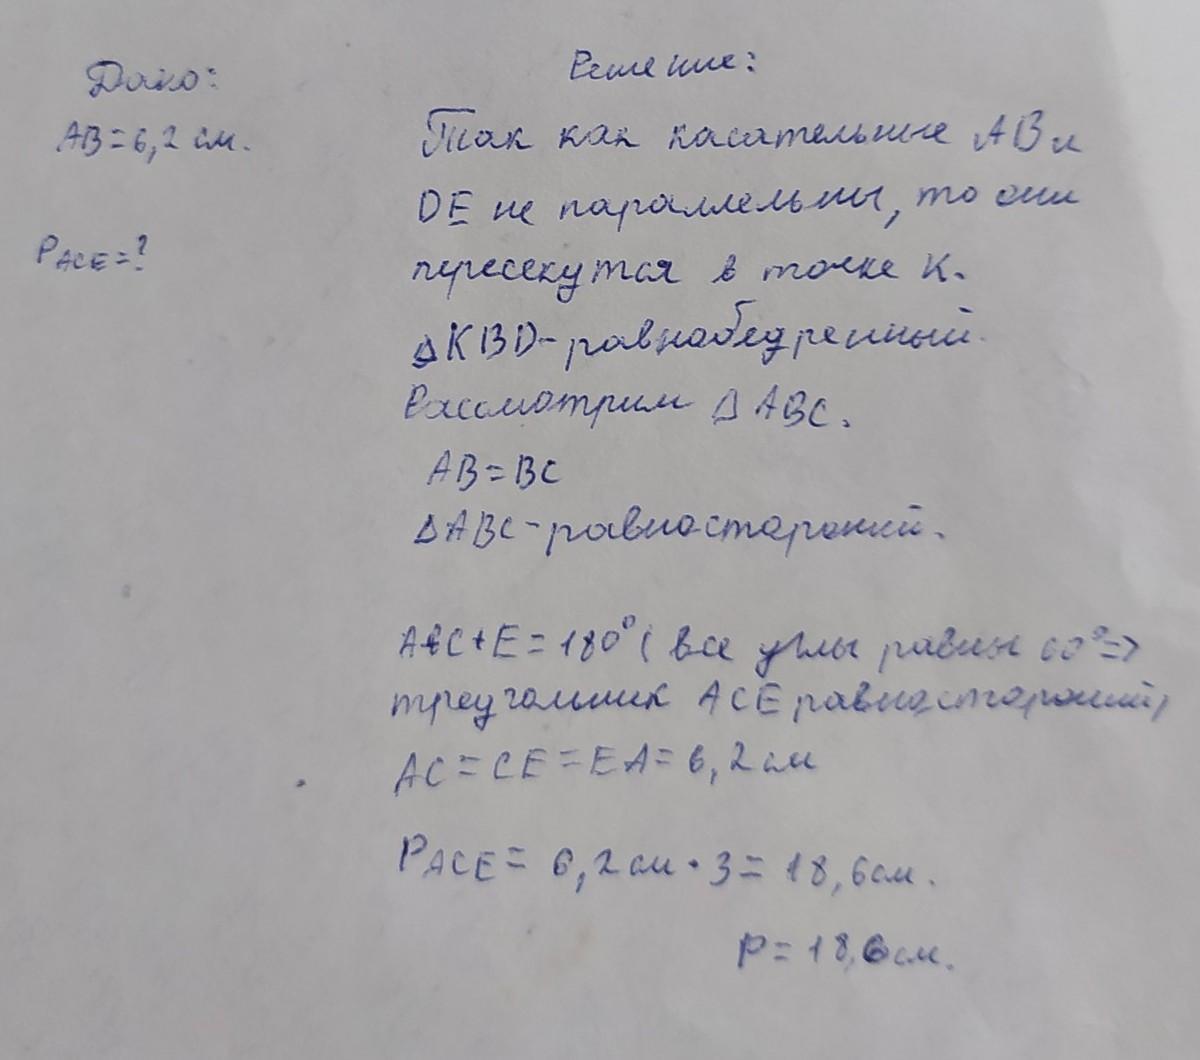 Дано:
AB=6,2 см.
PACE=?
Решение:
Так как касательные AB и
DE не параллельны, то они
пересекутся в точке K.
ΔKBD-равнабедренный.
Рассмотрим ΔABC.
AB=BC
ΔABC-равностароний.
A+C+E=180°(все углы равны 60°=>
треугольник ACE равностароний,
AC=CE=EA=6,2см
PACE= 6,2см·3=18,6см.
P=18,6см.